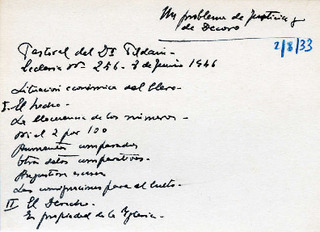 Un problema de Justicia y
de Decoro
2/8/33
Pastoral del Dr Pildain -
Ecclesia Nº 256 - 8 de Junio 1946
Situacion económica del Clero -
I. El hecho -
La elocuencia de los números -
Ni el 2 por 100
Aumentos comparados
Otros datos comparativos -
Angustiosa escasez
Las consignaciones para el culto -
II El Derecho -
Es propiedad de la Iglesia -